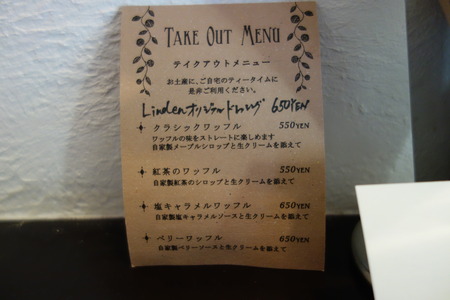 TAKE OUT MENU
テイクアウトメニュー
お土産に、ご自宅のティータイムに
是非ご利用ください。
Lindenオリジナルドレッシング 650YEN
クラシックワッフル 550YEN
ワッフルの味をストレートに楽しめます
自家製メープルシロップと生クリームを添えて
紅茶のワッフル 550YEN
自家製紅茶のシロップと生クリームを添えて
塩キャラメルワッフル 650YEN
自家製塩キャラメルソースと生クリームを添えて
ベリーワッフル 650YEN
自家製ベリーソースと生クリームを添えて